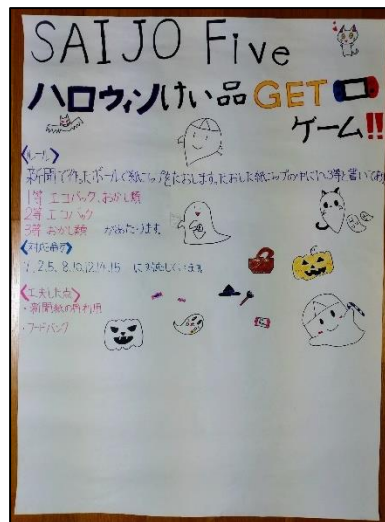 SAIJO Five
ハロウィンけい品GET
ゲーム!!
<ルール>
新聞で作ったボールで紙コップをたおします。たおした紙コップの中に
1等 エコバック、おかし類
2等 エコバック
3等 おかし類 があたります
に対応しています
<工夫した点>
・新聞紙の再利用
・フードバンク